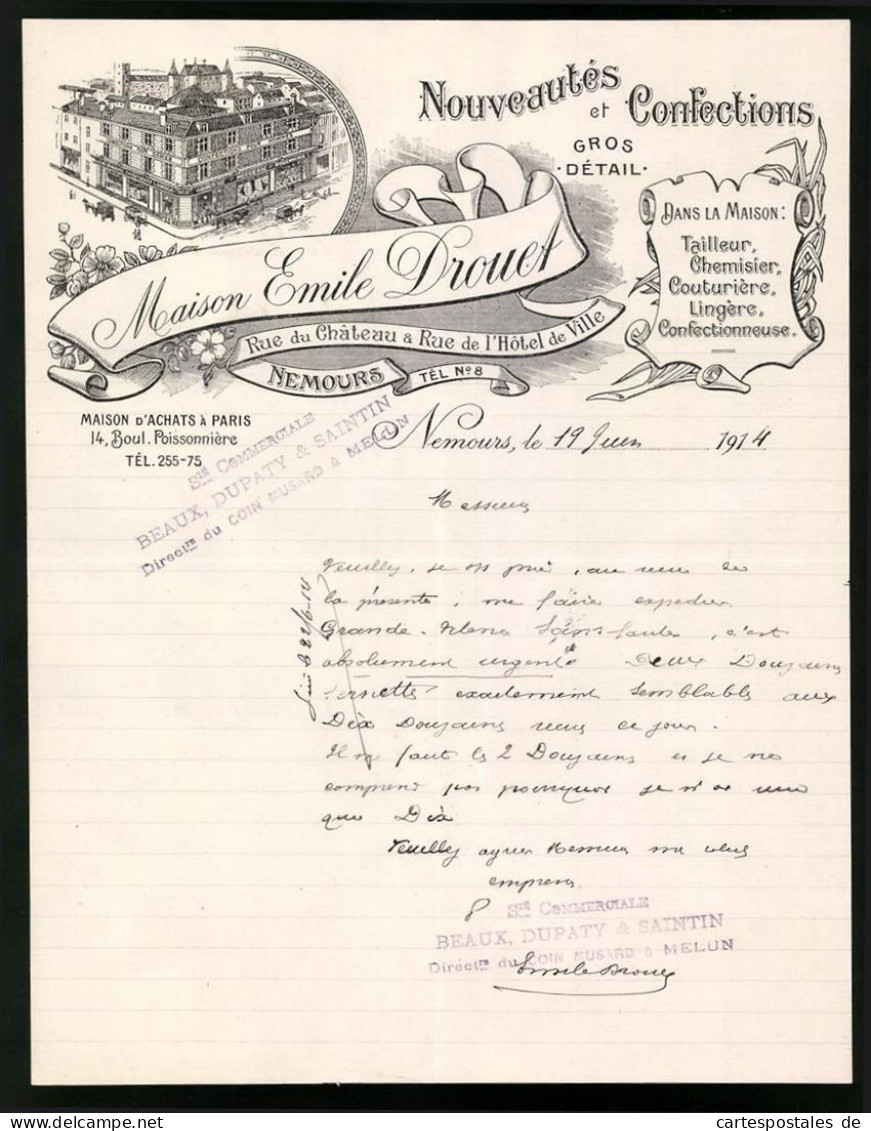 Nouveautés
et Confections
GROS
·DÉTAIL·
DANS LA MAISON:
Tailleur,
Chemisier,
Couturière,
Lingère,
Confectionneuse.
Maison Emile Drouet
Rue du Château & Rue de l'Hôtel de Ville
NEMOURS TÉL Nº 8
MAISON D'ACHATS À PARIS
14, Boul. Poissonnière
TÉL. 255-75
Sté COMMERCIALE
BEAUX, DUPATY & SAINTIN
Directrs du COIN MUSARD à MELUN
Nemours, le 19 Juin 1914
Messieurs
Veuillez, je vous prie, au reçu de
la présente, me faire expédier
Grande Vitesse Sans faute, c'est
absolument urgent Deux Douzaines
Serviettes exactement semblables aux
Dix Douzaines reçues ce jour.
Il me faut les 2 Douzaines et je ne
comprend pas pourquoi je n'ai reçu
que Dix
Veuillez agréer Messieurs mes salut
empressés
22/6-14
Sté COMMERCIALE
BEAUX, DUPATY & SAINTIN
Directrs du COIN MUSARD à MELUN
Emile Drouet
www.cartespostales.de
cartespostales de